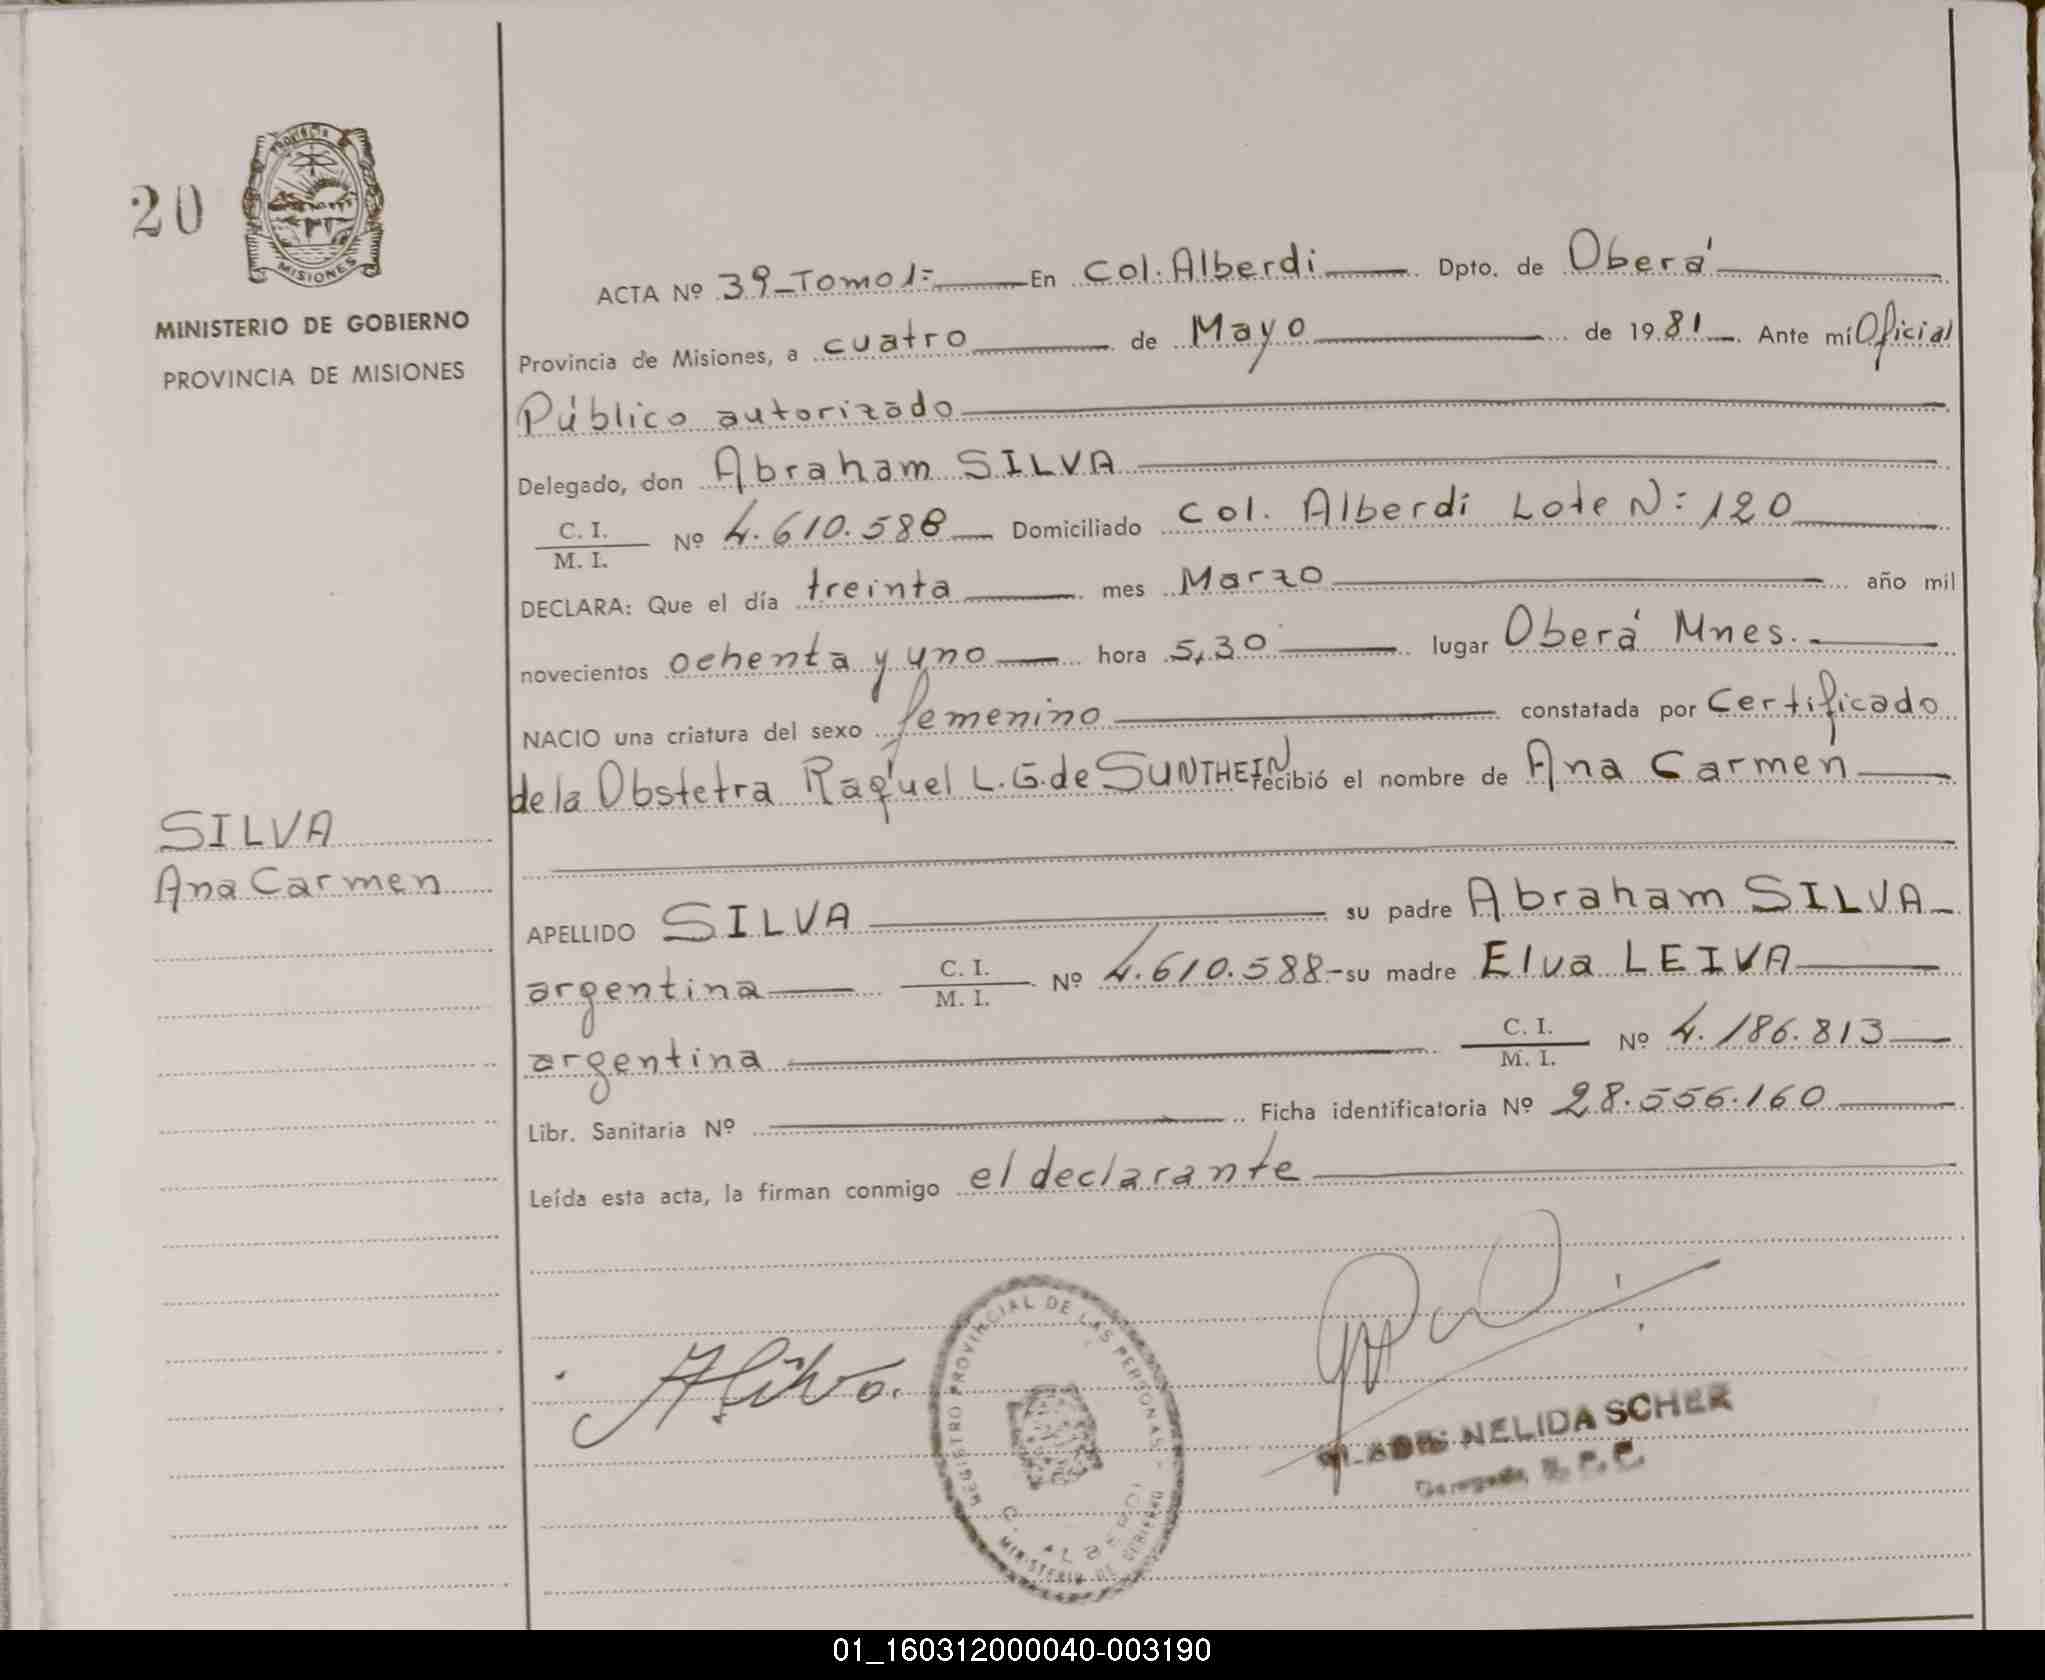 20
PROVINCIA
MISIONES
MINISTERIO DE GOBIERNO
PROVINCIA DE MISIONES
SILVA
Ana Carmen
ACTA Nº 39-Tomo 1= En Col. Alberdi Dpto. de Oberá
Provincia de Misiones, a cuatro de Mayo de 1981. Ante mí Oficial
Público autorizado
Delegado, don Abraham SILVA
C. I.
M. I. Nº 4.610.588 Domiciliado Col. Alberdi Lote N: 120
DECLARA: Que el día treinta mes Marzo año mil
novecientos ochenta y uno hora 5,30 lugar Oberá Mnes.
NACIO una criatura del sexo femenino constatada por Certificado
de la Obstetra Raquel L. G. de SUNTHEIN recibió el nombre de Ana Carmen
APELLIDO SILVA su padre Abraham SILVA
argentina C. I. M. I. Nº 4.610.588- su madre Elva LEIVA
argentina C. I. M. I. Nº 4.186.813
Libr. Sanitaria Nº Ficha identificatoria Nº 28.556.160
Leída esta acta, la firman conmigo el declarante
ASilva.
REGISTRO PROVINCIAL DE LAS PERSONAS -
C. ALBERDI
MINISTERIO DE GOBIERNO
NELIDA SCHER
01_160312000040-003190